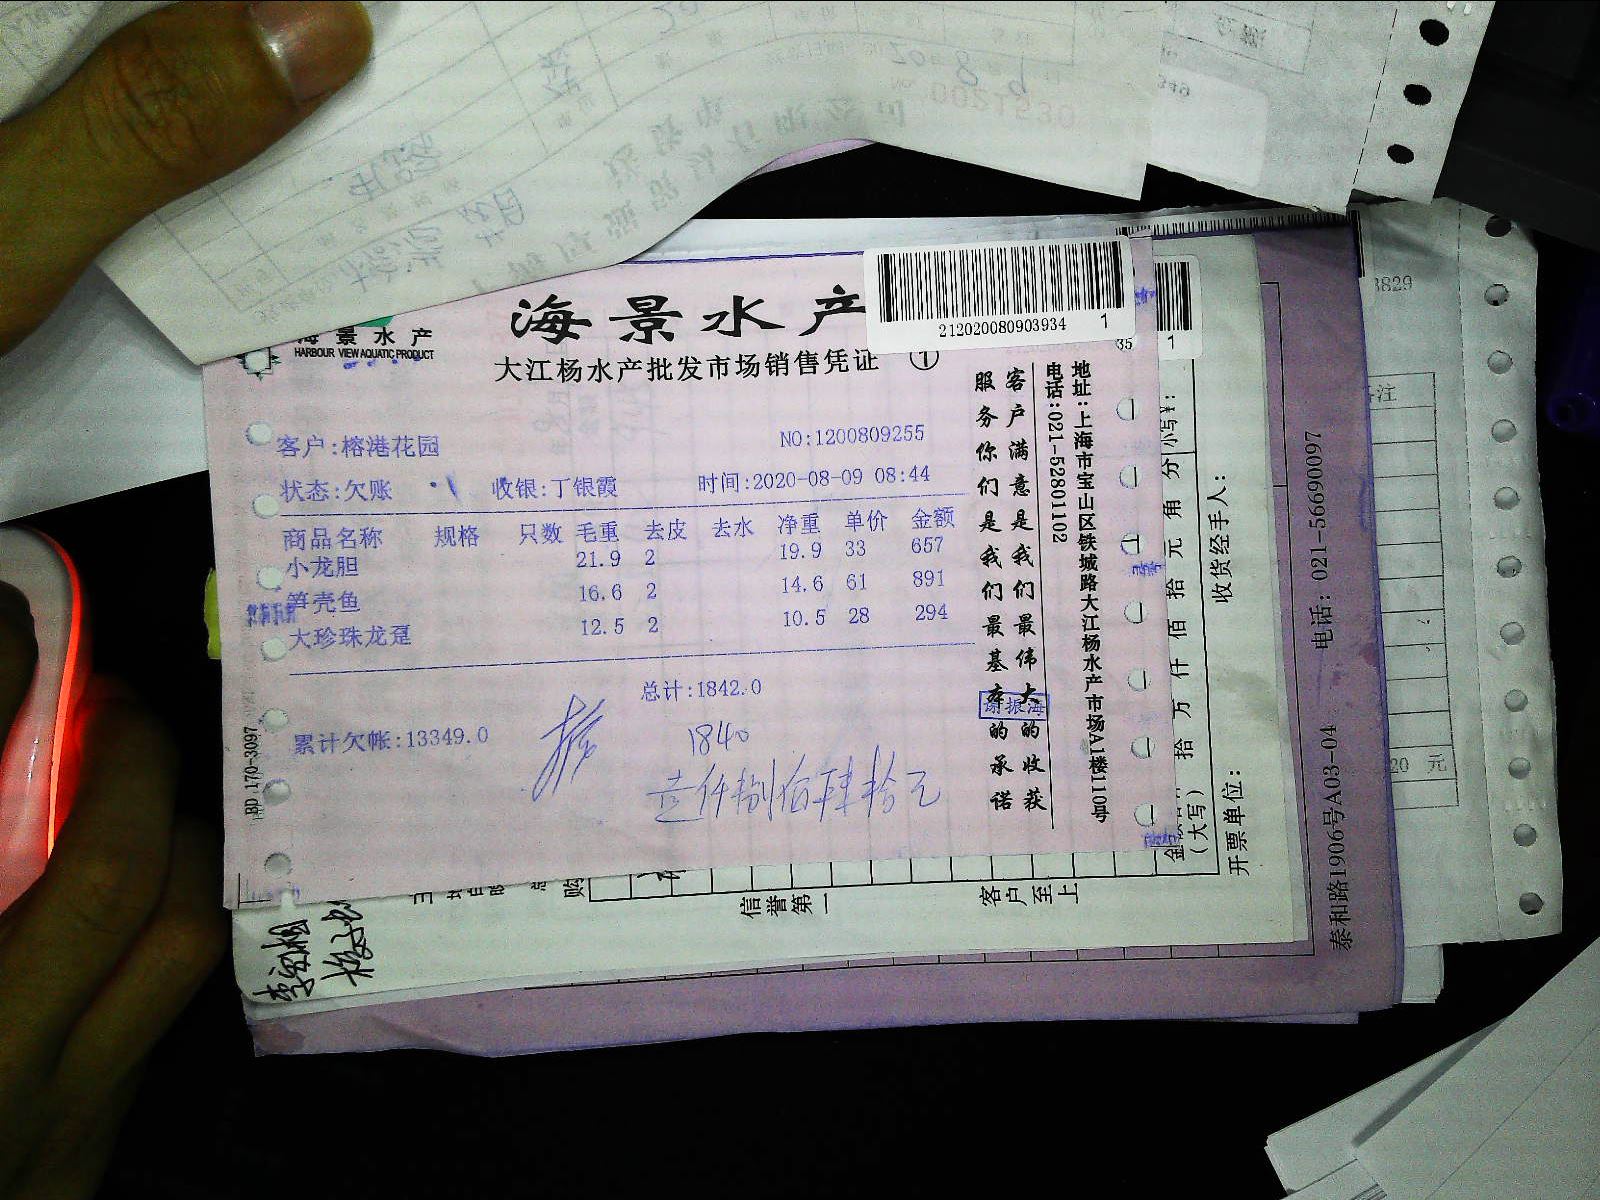 海景水产
HARBOUR VIEW AQUATIC PRODUCT
海景水产
大江杨水产批发市场销售凭证 ①
212020080903934 1
35 1
客户:榕港花园
NO:1200809255
状态:欠账 收银:丁银霞 时间:2020-08-09 08:44
商品名称 规格 只数 毛重 去皮 去水 净重 单价 金额
小龙胆 21.9 2 19.9 33 657
笋壳鱼 16.6 2 14.6 61 891
大珍珠龙趸 12.5 2 10.5 28 294
总计:1842.0
累计欠帐:13349.0
1840
壹仟捌佰肆拾元
BD 170-3097
客户满意是我们最伟大的收获
服务你们是我们最基本的承诺
谢振海
地址:上海市宝山区铁城路大江杨水产市场A1楼110号
电话:021-52801102
小写¥:
拾万仟佰拾元角分
(大写)
收货经手人:
开票单位:
信誉第一
客户至上
泰和路1906号A03-04 电话: 021-56690097
0021530
3829
注
20 元
549